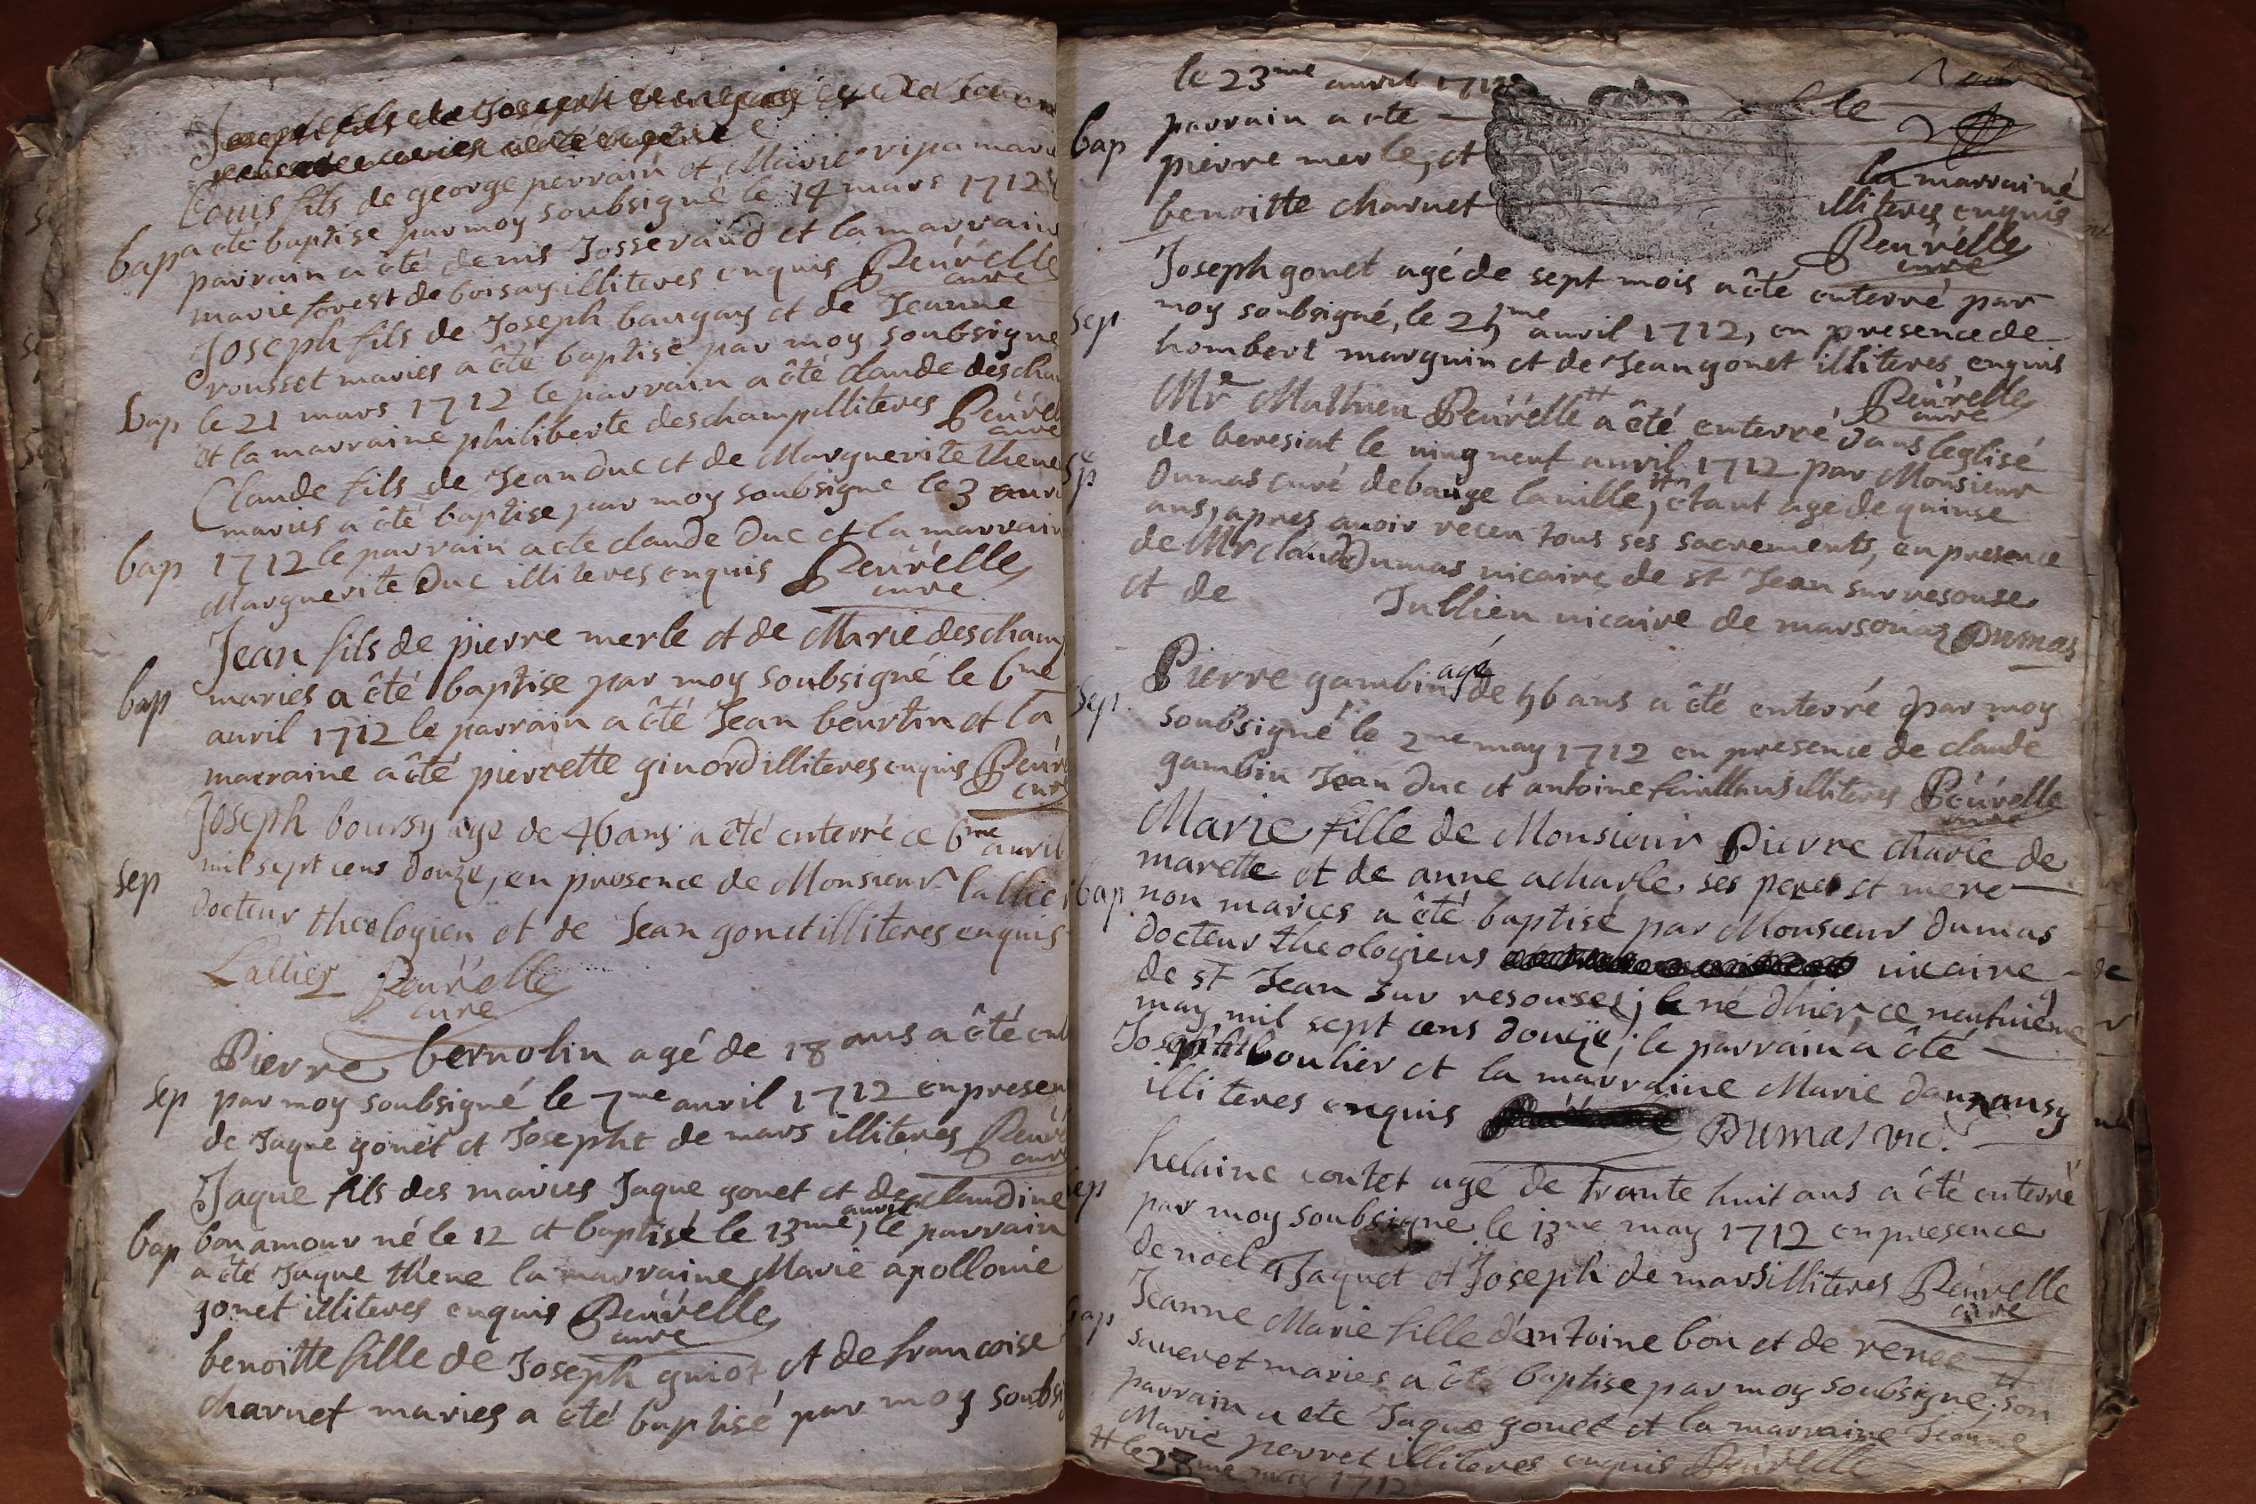 Joseph fils de Joseph et de Jeanne
maries a été baptisé
Louis fils de george perrain et Marie ripa marie
bap a été baptise par moy soubsigné le 14 mars 1712
parrain a ôté denis Josseraud et la marrain
marie forest de boisay illiteres enquis Peúrelle
curé
Joseph fils de Joseph bangay et de Jeanne
rousset maries a ôté baptise par moy soubsigne
bap le 21 mars 1712 le parrain a ôté claude descham
et la marraine philiberte deschamp illiteres Peúrel
cure
Claude fils de Jean Duc et de Marguerite thene
maries a ôté baptise par moy soubsigne le 3 avri
bap 1712 le parrain a ete claude Duc et la marrain
Marguerite Duc illiteres enquis Peúrélle
cure
Jean fils de pierre merle et de Marie descham
bap maries a ôté baptise par moy soubsigné le 6me
auril 1712 le parrain a ôté Jean beurtin et la
marraine a ôté pierrette ginord illiteres enquis Peúr
cure
Joseph boursy age de 46 ans a ôté enterré ce 6me auril
sep mil sept cens douze, en presence de Monsieur lallier
docteur theologien et de Jean gonet illiteres enquis
Lallier Peúrélle
cure
Pierre bernolin agé de 18 ans a ôté ent
sep par moy soubsigné le 7me auril 1712 en presen
de Jaque gonet et Josepht de mars illiteres Peúré
cure
Jaque fils des maries Jaque gonet et de claudine
bap bonamour né le 12 et baptisé le 13me auril, le parrain
a ôté Jaque thene la marraine Marie apollonie
gonet illiteres enquis Peúrélle
cure
benoitte fille de Joseph guiot et de francoise
charnet maries a ôté baptisé par moy soubsi
le 23me auril 1712
bap parrain a ote le
pierre merle, et la marraine
benoitte charnet illiteres enquis
Peúrélle
cure
Joseph gonet agé de sept mois a ôté enterré par
sep moy soubsigné, le 25me auril 1712, en presence de
hombert marguin et de Jean gonet illiteres enquis
Peúrelle
cure
Mr Mathieu Peúrélle a ôté enterré dans leglise
sep de beresiat le ningneuf auril 1712 par Monsieur
Dumas curé de bauge la uille, etant age de quinse
ans, apres auoir receu tous ses sacrements, en presence
de Mr claude Dumas uicaire de st Jean sur resouse
et de Jullien uicaire de marsonas Dumas
sep Pierre gambin agé de 56 ans a ôté enterré par moy
soubsigné le 2me may 1712 en presence de claude
gambin Jean Duc et antoine illiteres Peúrelle
cure
Marie fille de Monsieur Pierre charle de
marette et de anne acharle ses peres et mere
bap non maries a ôté baptisé par Monsieur dumas
docteur theologiens uicaire
de st Jean sur resouse; né dhier, ce neufuiéme
may mil sept cens douze; le parrain a ôté
Joseph boulier et la marraine Marie dannansy
illiteres enquis Dumas vic.
sep helaine contet agé de trante huit ans a ôté enterré
par moy soubsigne le 13me may 1712 en presence
de noel Jaquet et Joseph de mars illiteres Peúrelle
cure
bap Jeanne Marie fille d'antoine bon et de renee
saueret maries a ôté baptise par moy soubsigne; son
parrain a ete Jaque gonet et la marraine Jeanne
Marie perret illiteres enquis Peúrélle
# le 23me may 1712